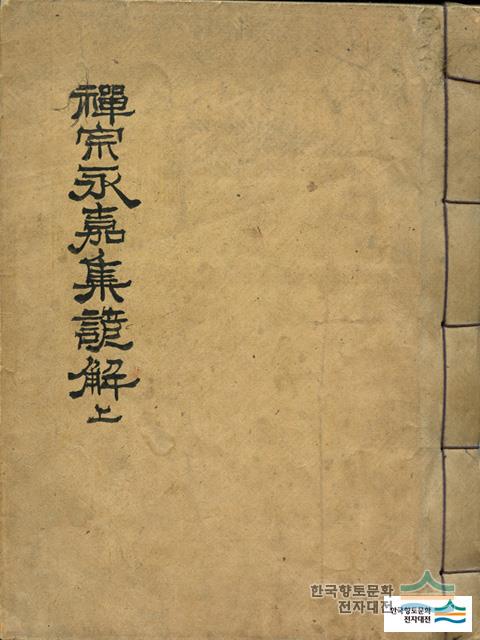 禪宗永嘉集諺解上
한국향토문화
전자대전
한국향토문화
전자대전